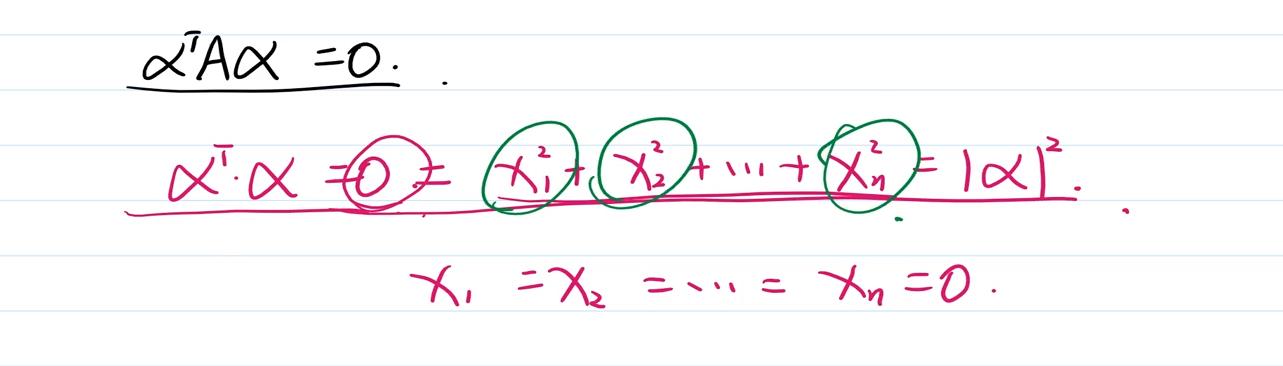 αᵀAα = 0.
αᵀ·α = 0 = x₁² + x₂² + ... + xₙ² = |α|².
x₁ = x₂ = ... = xₙ = 0.